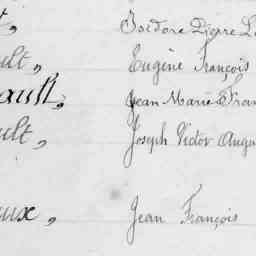 t, Isidore Pierre L
ult, Eugène François
ault, Jean Marie Fran
ult, Joseph Victor Augu
aux, Jean François